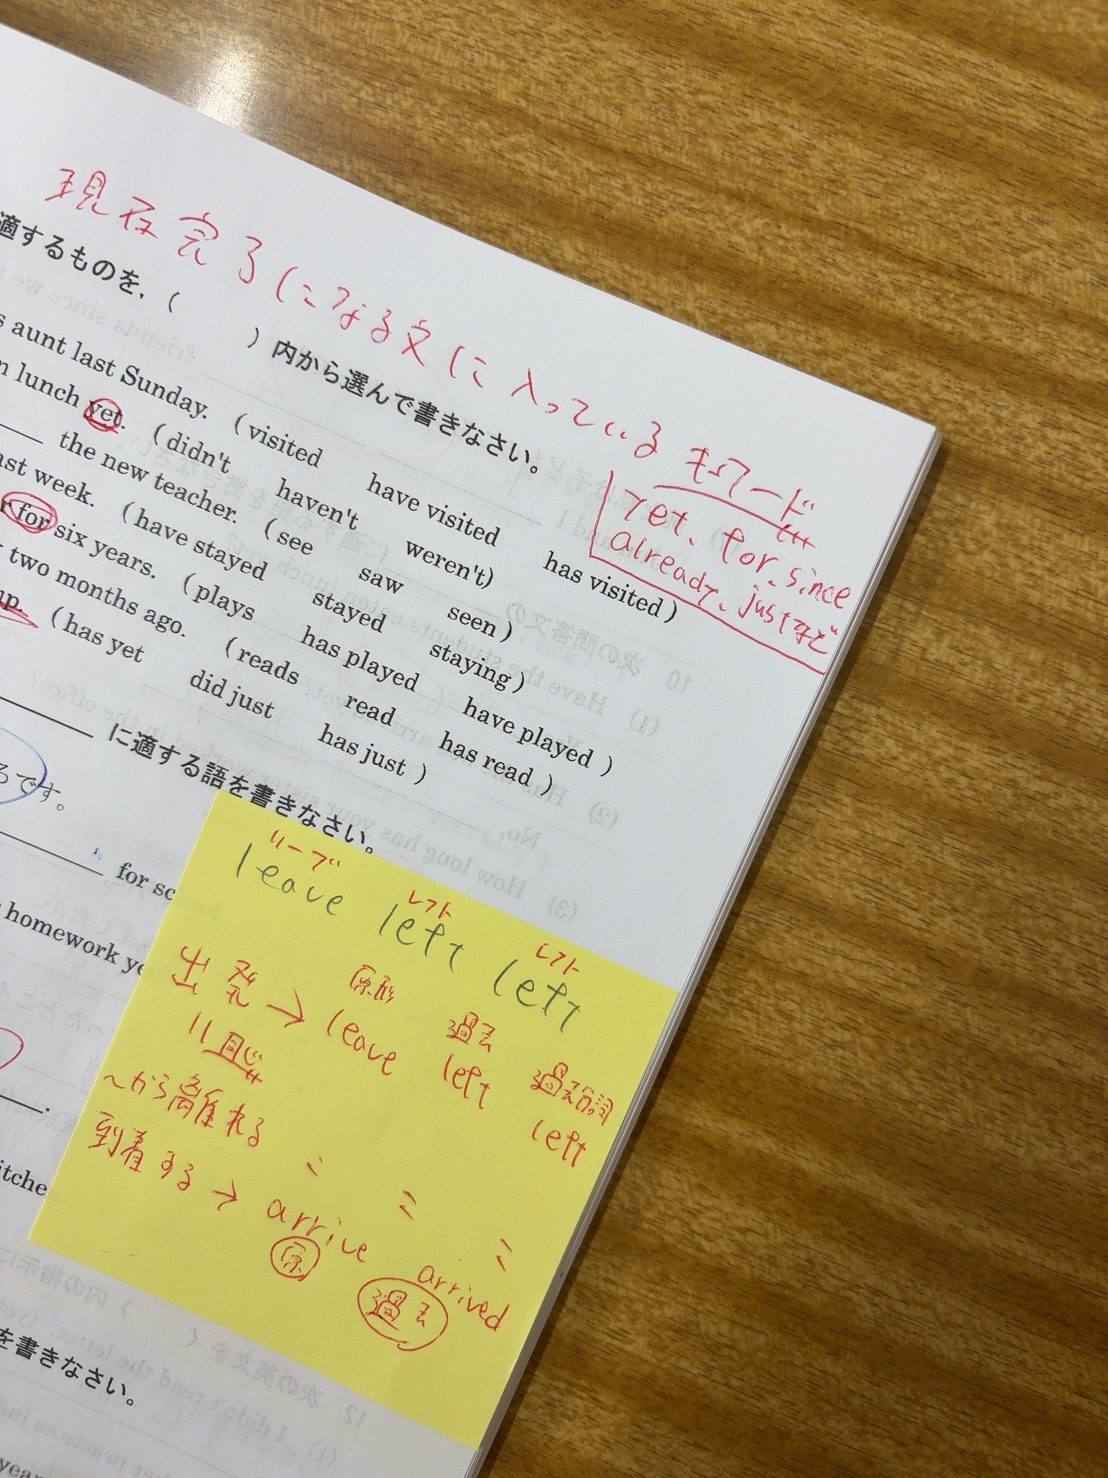 現在完了になる文に入っているキーワード
yet、for、since
already、justなど
適するものを，(　　)内から選んで書きなさい。
aunt last Sunday. (visited have visited has visited)
lunch yet. (didn't haven't weren't)
the new teacher. (see saw seen)
week. (have stayed stayed staying)
for six years. (plays has played have played)
two months ago. (reads read has read)
up. (has yet did just has just)
に適する語を書きなさい。
です。
for
homework
を書きなさい。
リーブ レフト レフト
leave left left
原形 過去 過去分詞
出発→leave left left
〃同じ
〜から離れる 〃 〃 〃
到着する→arrive arrived
原 過去